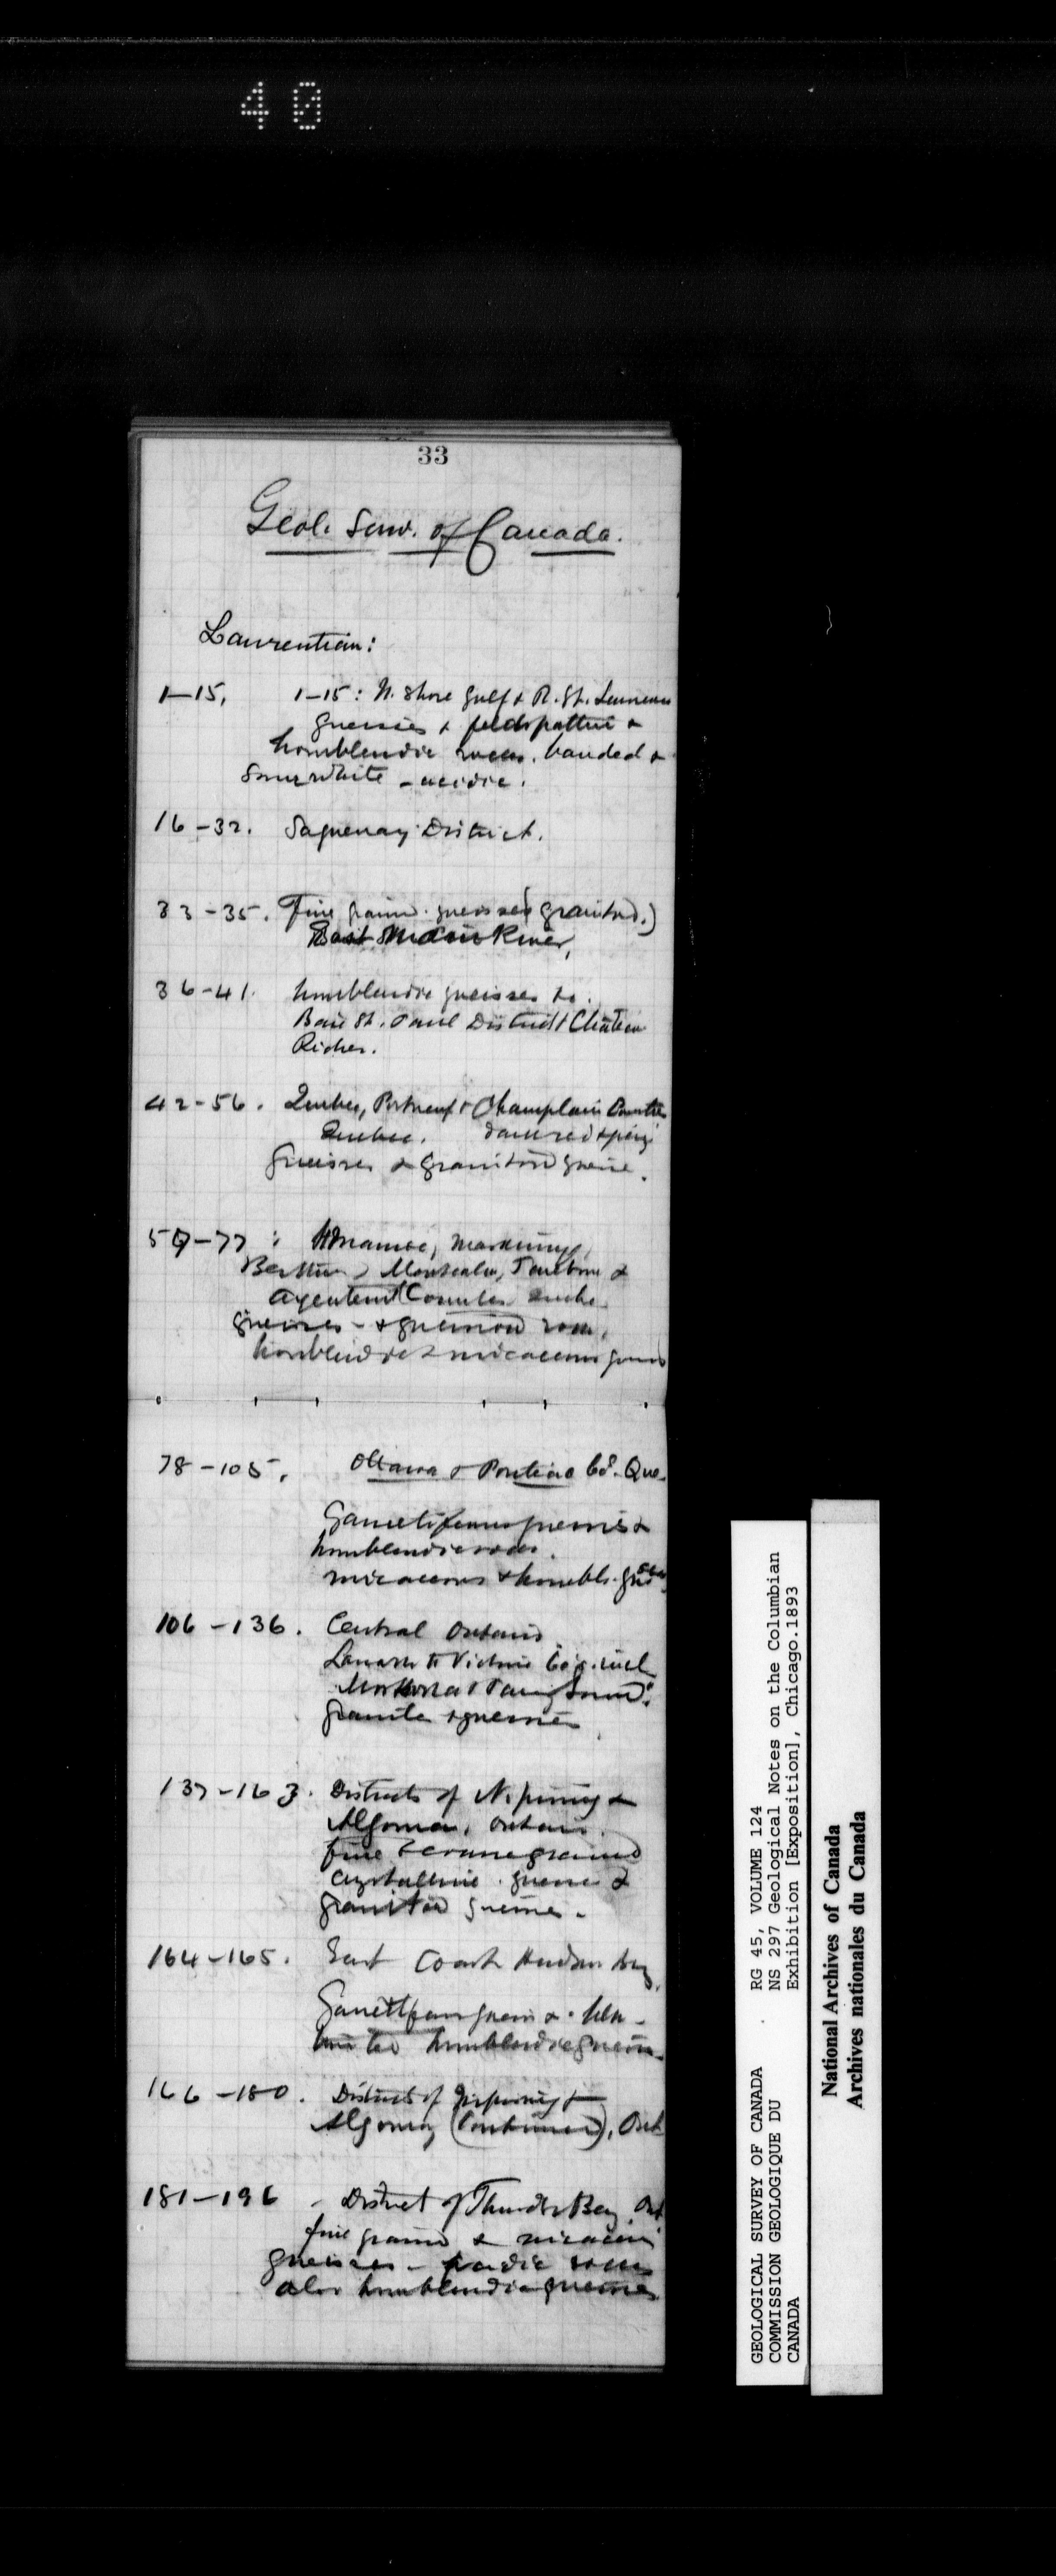 40
33
Geol. Surv. of Canada.
Laurentian:
1-15, 1-15: N. Shore Gulf & R. St. Lawrence
gneisses & feldspathic &
hornblendic rocks. banded &
some white - acidic.
16-32. Saguenay District.
33-35. Fine grained gneisses (granitoid.)
East Main River,
36-41. hornblendic gneisses &c.
Baie St. Paul District & Château
Richer.
42-56. Quebec, Portneuf & Champlain Counties
Quebec. dark red &
gneisses & granitoid gneiss.
57-77: Maskinongé,
Berthier, Montcalm, Terrebonne &
Argenteuil Counties Quebec
gneisses - & gneissoid rocks,
hornblendic & micaceous gneiss
78-105, Ottawa & Pontiac Co. Que.
Garnetiferous gneisses &
hornblendic rocks.
micaceous & hornbl. gneisses
106-136. Central Ontario
Lanark to Victoria Co's. incl.
Muskoka & Parry Sound:
granite & gneisses
137-163. Districts of Nipissing &
Algoma, Ontario.
fine & coarse grained
crystalline gneiss &
granitoid gneisses.
164-165. East Coast Hudson Bay.
Garnetiferous gneiss &
hornblendic gneiss.
166-180. Districts of Nipissing &
Algoma, (Continued), Ont.
181-196 - District of Thunder Bay, Ont.
fine grained & micaceous
gneisses - rocks
also hornblendic gneisses
GEOLOGICAL SURVEY OF CANADA RG 45, VOLUME 124
COMMISSION GEOLOGIQUE DU NS 297 Geological Notes on the Columbian
CANADA Exhibition [Exposition], Chicago.1893
National Archives of Canada
Archives nationales du Canada